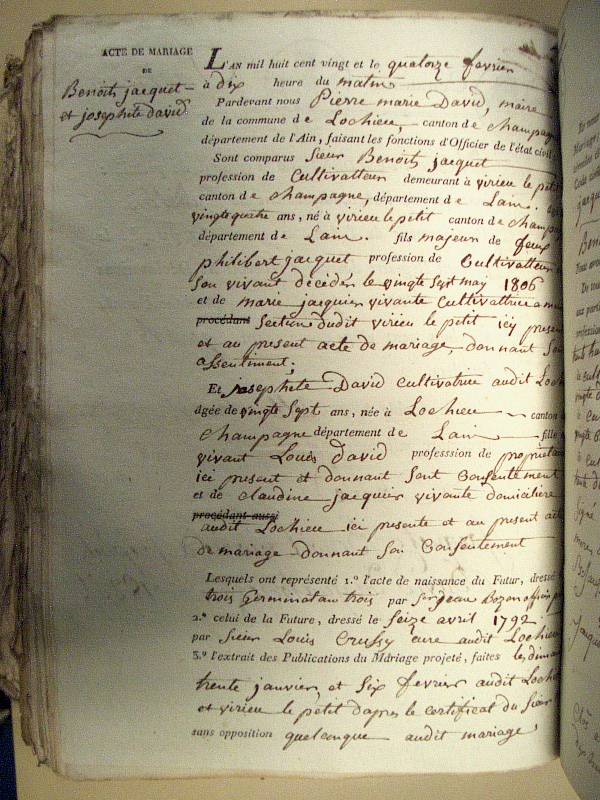 ACTE DE MARIAGE
DE
Benoits jacquet
et josephete david
L'AN mil huit cent vingt et le quatorze fevrier
à dix heure du matin
Pardevant nous Pierre marie David, maire
de la commune de Lochieu, canton de champagne
département de l'Ain, faisant les fonctions d'Officier de l'état civil
Sont comparus Sieur Benoits jacquet
profession de Cultivatteur demeurant à virieu le petit
canton de champagne, département de Lain.
vingtequatre ans, né à virieu le petit canton de champ
département de Lain. fils majeur de feux
philibert jacquet profession de Cultivatteur
Son vivant décédés le vingte Sept may 1806
et de marie jacquier vivante Cultivattrice a
procédant Section dudit virieu le petit icy presen
et au present acte de mariage, donnant Son
assentiment;
Et josephete David cultivatrice audit Loch
âgée de vingte Sept ans, née à Lochieu canton
champagne département de Lain fille
vivant Louis David professsion de proprietai
ici present et donnant Sont Consentement
et de claudine jacquier vivante domiciliere
procédant aussi
audit Lochieu ici presente et au present act
de mariage donnant Son Consentement
Lesquels ont représenté 1.º l'acte de naissance du Futur, dressé
trois Germinal an trois par Serjean Bozon officier
2.º celui de la Future, dressé le Seize avril 1792.
par Sieur Louis Crussy cure audit Lochieu
3.º l'extrait des Publications du Mariage projeté, faites les diman
trente janvier, et Six fevrier audit Loch
et virieu le petit dapres le certificat du Sieur
sans opposition quelconque audit mariage